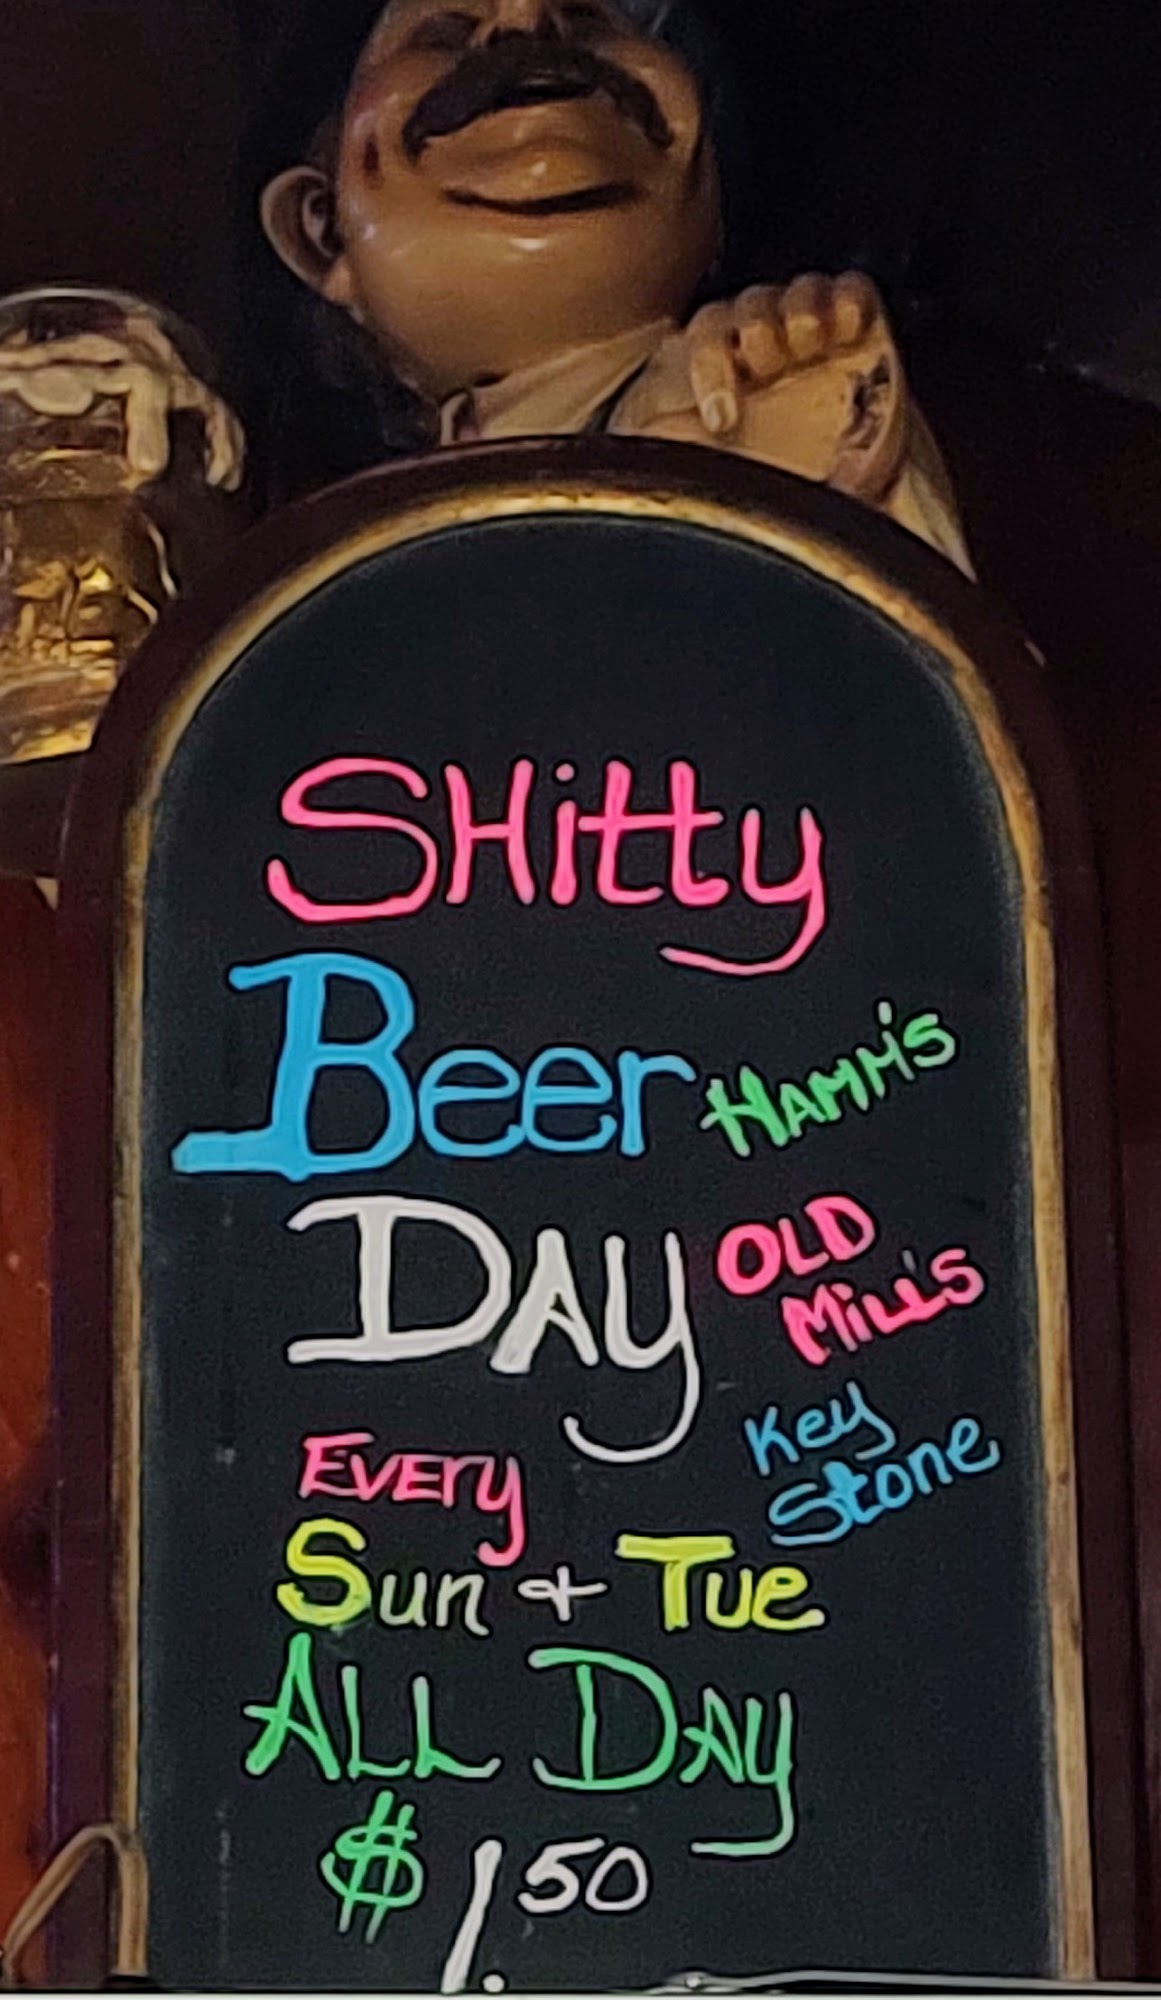 SHitty
Beer
HAMM'S
DAY
OLD
Mill's
Key
Stone
EVERy
Sun + TUE
ALL DAY
$1.50